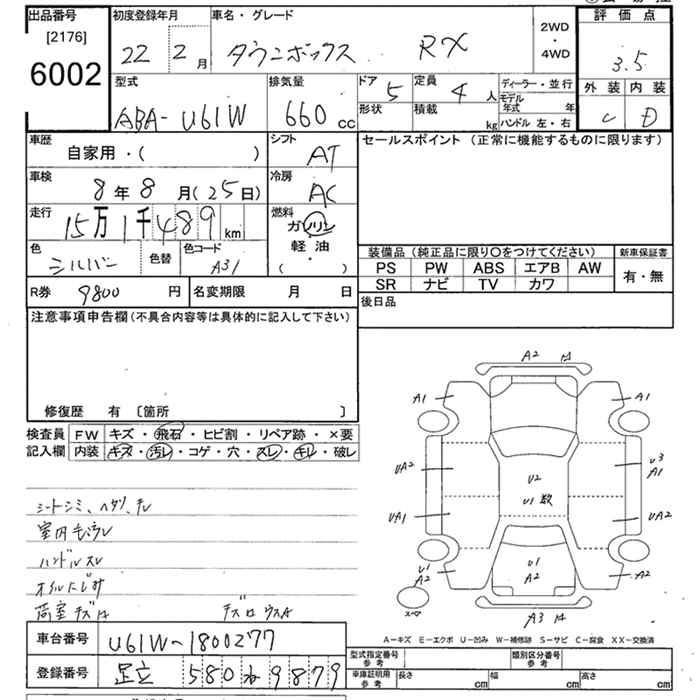 出品番号 初度登録年月 車名・グレード 評価点
[2176] 22年 2月 タウンボックス RX 2WD・4WD 3.5
6002
型式 排気量 ドア 5 定員 4人 ディーラー・並行 外装 内装
ABA-U61W 660cc 形状 積載 kg モデル年式 年 C D
ハンドル 左・右
車歴 シフト セールスポイント (正常に機能するものに限ります)
自家用・( ) AT
車検 冷房
8年8月(25日) AC
走行 燃料
15万1千489km ガソリン
色 色替 色コード 軽油
シルバー A31 ( ・ )
装備品 (純正品に限り○をつけてください) 新車保証書
PS PW ABS エアB AW 有・無
SR ナビ TV カワ
R券 9800円 名変期限 月 日 後日品
注意事項申告欄(不具合内容等は具体的に記入して下さい)
修復歴 有 〔箇所 〕
検査員 FW キズ・飛石・ヒビ割・リペア跡・×要
記入欄 内装 キズ・汚レ・コゲ・穴・スレ・キレ・破レ
A2
A1 A1
UA2 U3 A1
U2
U1 数
UA1 UA2
U1 A2 U1 A2 A2
A3
シートシミ、ヘタリ、チレ
室内モヨウレ
ハンドルスレ
オイルにじみ
荷室キズ
車台番号 U61W-1800277
登録番号 足立 580 ね 9879
A−キズ E−エクボ U−凹み W−補修跡 S−サビ C−腐食 XX−交換済
型式指定番号 参考 類別区分番号 参考
車庫証明用 参考 長さ cm 幅 cm 高さ cm